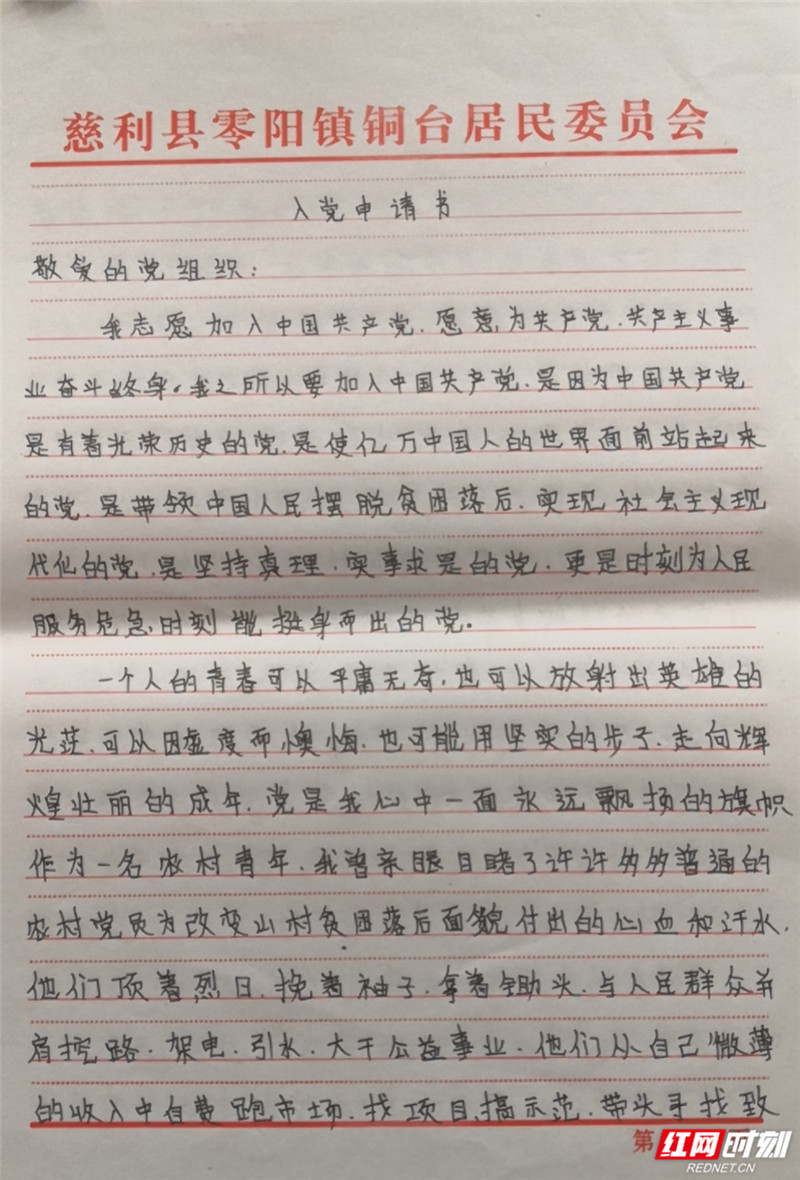 慈利县零阳镇铜台居民委员会
入党申请书
敬爱的党组织：
我志愿加入中国共产党，愿意为共产党，共产主义事
业奋斗终身。我之所以要加入中国共产党，是因为中国共产党
是有着光荣历史的党，是使亿万中国人的世界面前站起来
的党，是带领中国人民摆脱贫困落后，实现社会主义现
代化的党，是坚持真理，实事求是的党，更是时刻为人民
服务危急时刻能挺身而出的党。
一个人的青春可以平庸无奇，也可以放射出英雄的
光茫，可以因虚度而懊悔，也可能用坚实的步子，走向辉
煌壮丽的成年，党是我心中一面永远飘扬的旗帜
作为一名农村青年，我曾亲眼目睹了许许多多普通的
农村党员为改变山村贫困落后面貌付出的心血和汗水，
他们顶着烈日，挽着袖子，拿着锄头，与人民群众并
肩挖路，架电，引水，大干公益事业，他们从自己微薄
的收入中自费跑市场，找项目，搞示范，带头寻找致
第
红网时刻
REDNET.CN